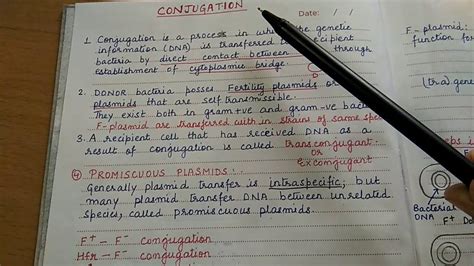 CONJUGATION
Date: / /
1. Conjugation is a process in which the genetic
information (DNA) is transferred recipient
bacteria by direct contact between through
establishment of cytoplasmic bridge.
2. DONOR bacteria posses Fertility plasmids or
plasmids that are self transmissible.
They exist both in gram+ve and gram-ve
F-plasmid are transferred with in strains of same
3. A recipient cell that has received DNA as a
result of conjugation is called transconjugant
or
Exconjugant
4 PROMISCUOUS PLASMIDS:
Generally plasmid transfer is intraspecific, but
many plasmid transfer DNA between unrelated
species, called promiscuous plasmids.
F+ - F- conjugation
Hfr - F- conjugation
F-plasmid:
function for
(tra) gene
Bacterial
DNA
F+